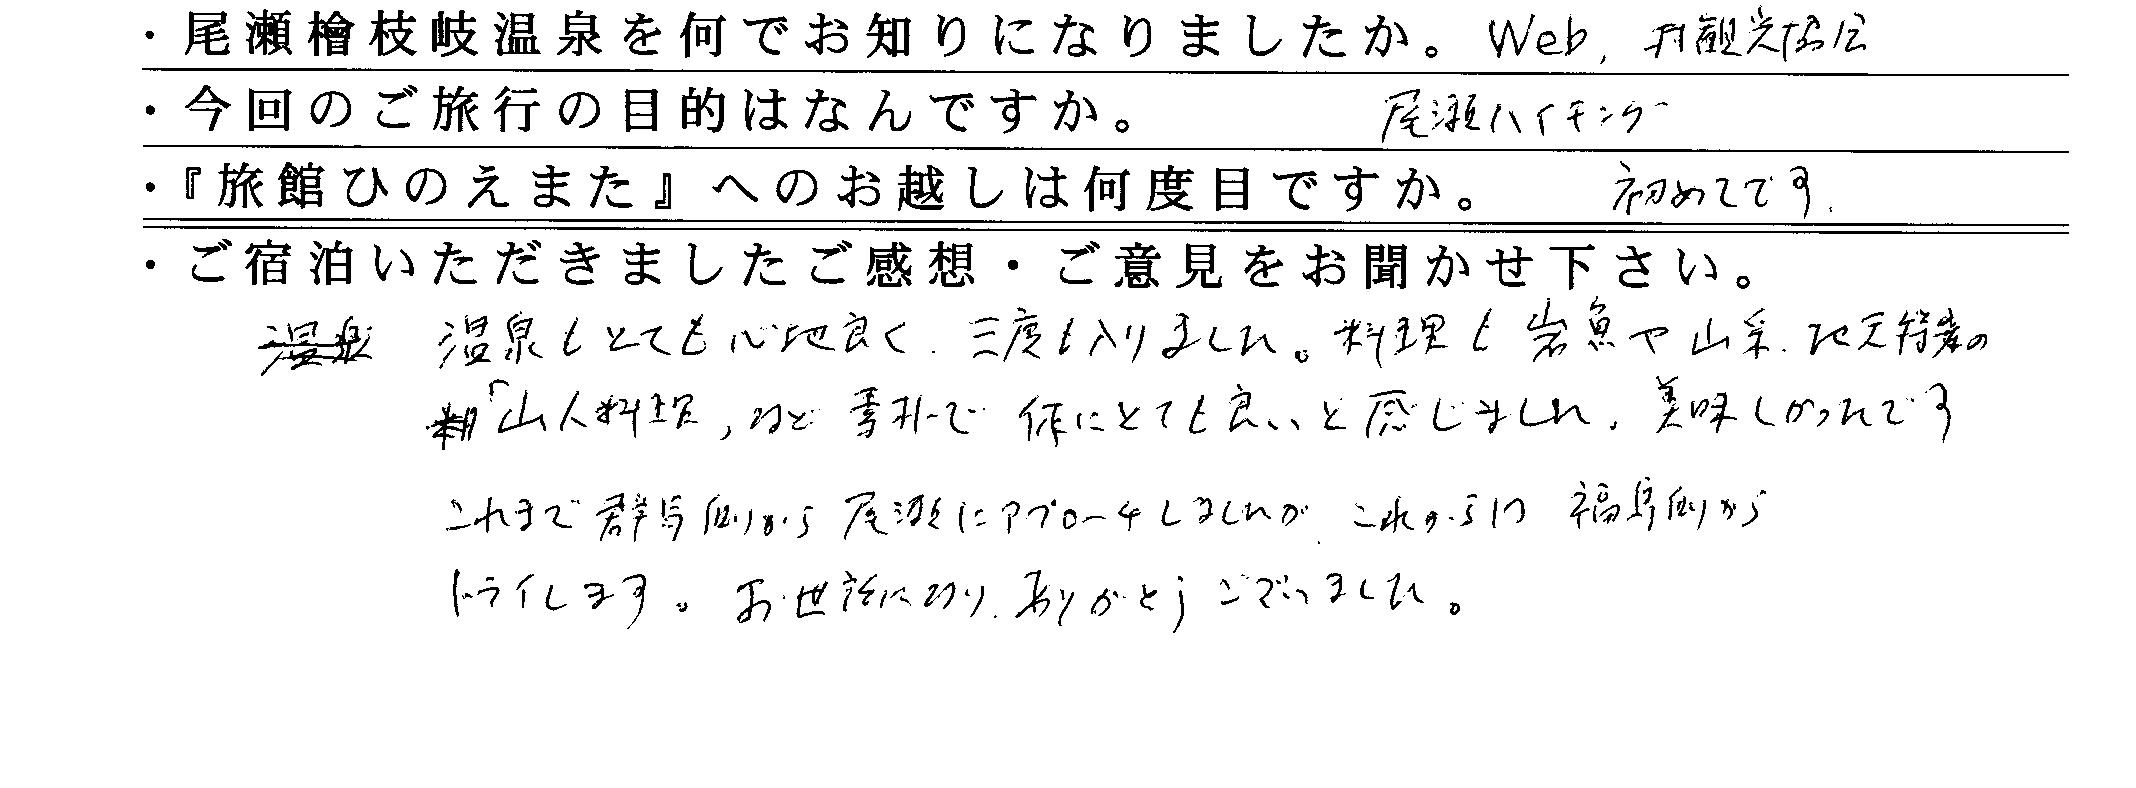 ・尾瀬檜枝岐温泉を何でお知りになりましたか。 Web, 村観光協会
・今回のご旅行の目的はなんですか。 尾瀬ハイキング
・『旅館ひのえまた』へのお越しは何度目ですか。 初めてです.
・ご宿泊いただきましたご感想・ご意見をお聞かせ下さい。
温泉もとても心地良く、三度も入りました。料理も岩魚や山菜、地元特産の
「山人料理」など素朴で体にとても良いと感じました。美味しかったです
これまで群馬側から尾瀬にアプローチしましたが、これからは福島側から
トライします。お世話になり、ありがとうございました。